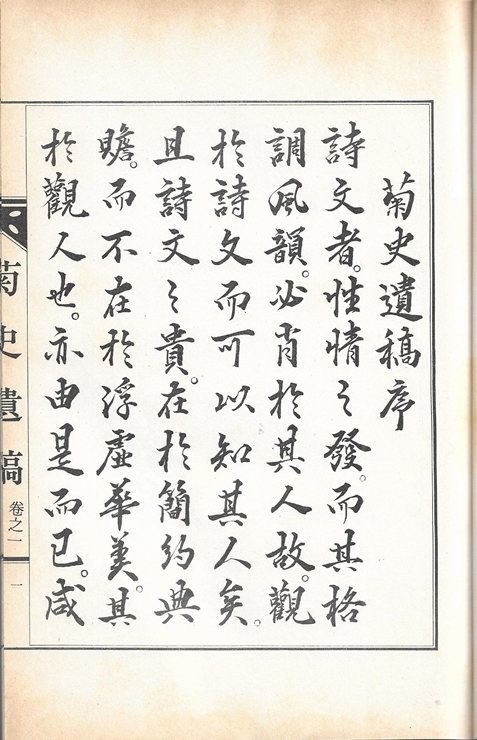 菊史遺稿序
詩文者。性情之發。而其格
調風韻。必肖於其人故。觀
於詩文而可以知其人矣。
且詩文之貴。在於簡約典
贍。而不在於浮虛華美。其
於觀人也。亦由是而已。咸
菊史遺稿 卷之一 一